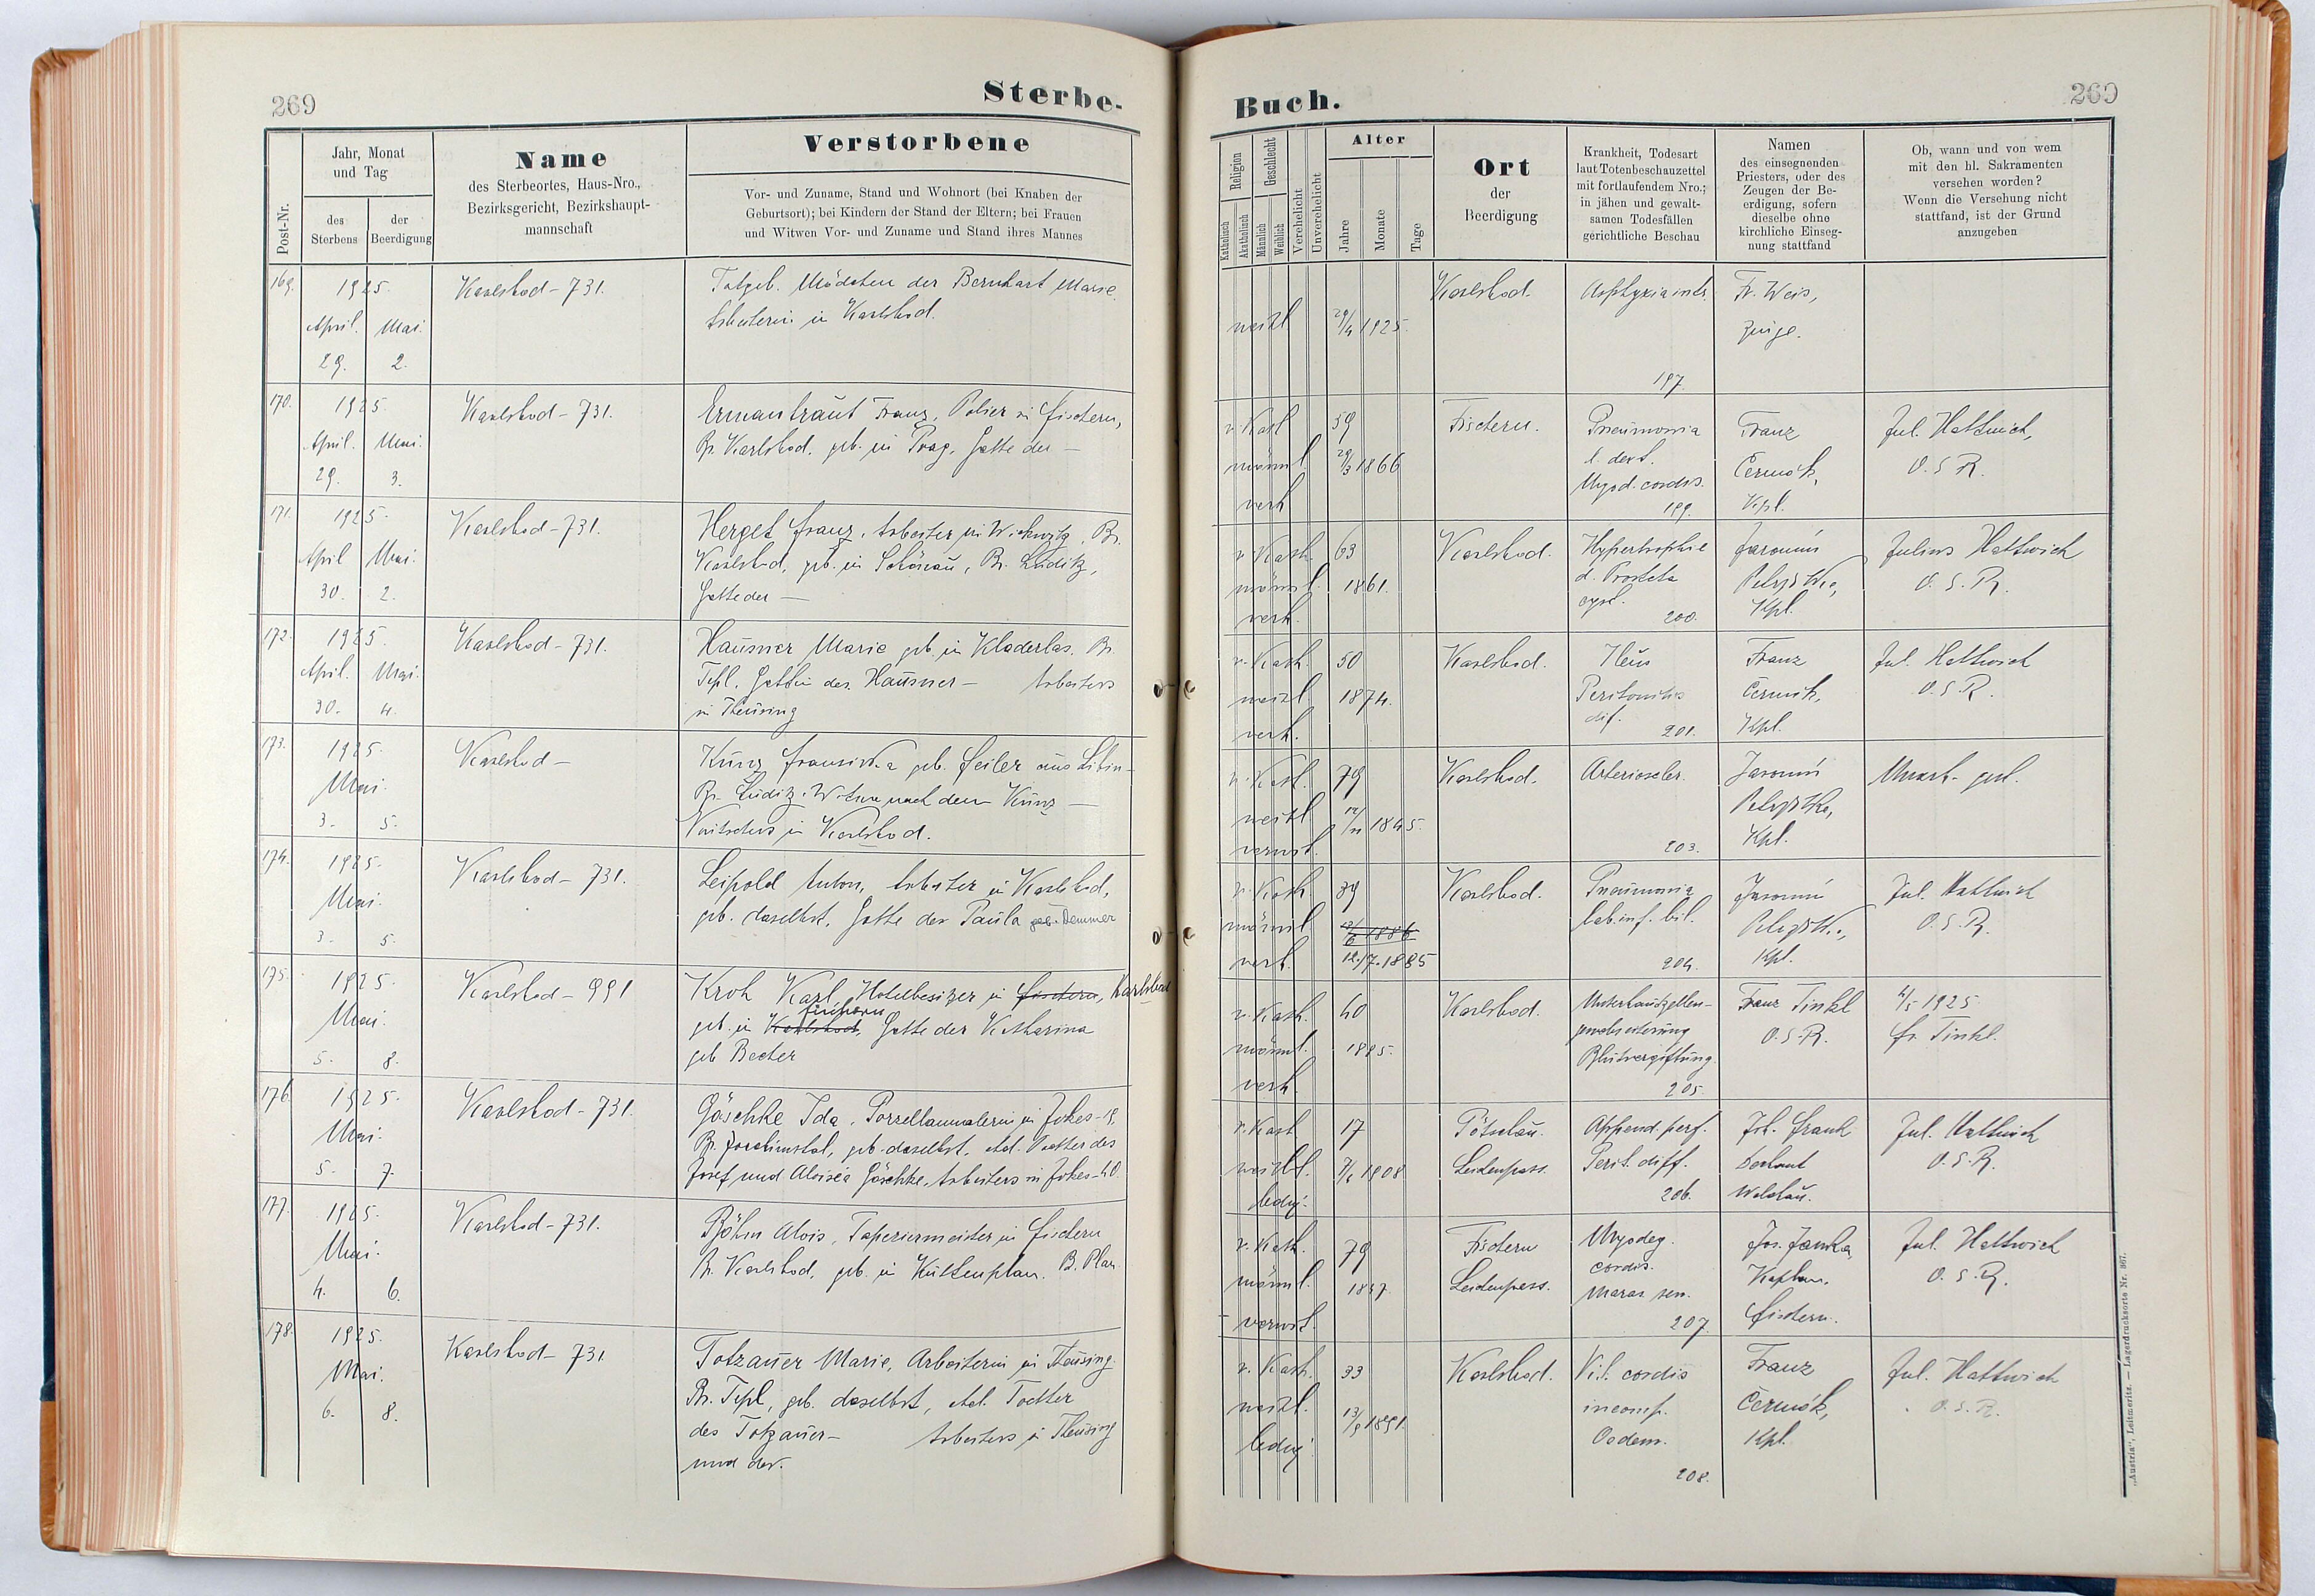 269
Sterbe-
Post-Nr.
Jahr, Monat
und Tag
des
Sterbens
der
Beerdigung
Name
des Sterbeortes, Haus-Nro.,
Bezirksgericht, Bezirkshaupt-
mannschaft
Verstorbene
Vor- und Zuname, Stand und Wohnort (bei Knaben der
Geburtsort); bei Kindern der Stand der Eltern; bei Frauen
und Witwen Vor- und Zuname und Stand ihres Mannes
169.
1925.
April. Mai.
29. 2.
Karlsbad - 731.
Totgeb. Mädchen der Bernhart Marie
Arbeiterin in Karlsbad.
170.
1925
April. Mai.
29. 3.
Karlsbad - 731.
Ermantraut Franz, Polier in Fischern,
Bz. Karlsbad, geb. in Prag, Gatte der —
171.
1925.
April Mai.
30. 2.
Karlsbad - 731.
Herget Franz, Arbeiter in Wickwitz, Bz.
Karlsbad, geb. in Schönau, Bz. Luditz,
Gatte der —
172.
1925.
April. Mai.
30. 4.
Karlsbad - 731.
Hausner Marie geb. in Kladerlas, Bz.
Tepl, Gattin des Hausner — Arbeiters
in Theusing
173.
1925.
Mai.
3. 5.
Karlsbad —
Kunz Franziska geb. Feiler aus Libin -
Bz. Luditz. Witwe nach dem Kunz —
in Karlsbad.
174.
1925.
Mai.
3. 5.
Karlsbad - 731.
Leipold Anton, Arbeiter in Karlsbad,
geb. daselbst, Gatte der Paula geb. Demmer
175.
1925
Mai.
5. 8.
Karlsbad - 991
Kroh Karl, Hotelbesitzer in Fischern, Karlsbad
Fischern
geb. in Karlsbad, Gatte der Katharina
geb Becher
176.
1925.
Mai.
5. 7.
Karlsbad - 731.
Göschke Ida, Porzellanmalerin in Jokes - 19,
Bz. Joachimstal, geb. daselbst, ehel. Tochter des
Josef und Aloisia Göschke, Arbeiters in Jokes - 40.
177.
1925.
Mai.
4. 6.
Karlsbad - 731.
Böhm Alois, Tapeziermeister in Fischern
Bz. Karlsbad, geb. in Kuttenplan. B. Plan.
178.
1925.
Mai.
6. 8.
Karlsbad - 731
Totzauer Marie, Arbeiterin in Theusing
Bz. Tepl, geb. daselbst, ehel. Tochter
des Totzauer — Arbeiters in Theusing
und der.
Buch.
269
Religion
Katholisch
Akatholisch
Geschlecht
Männlich
Weiblich
Verehelicht
Unverehelicht
Alter
Jahre
Monate
Tage
Ort
der
Beerdigung
Krankheit, Todesart
laut Totenbeschauzettel
mit fortlaufendem Nro.;
in jähen und gewalt-
samen Todesfällen
gerichtliche Beschau
Namen
des einsegnenden
Priesters, oder des
Zeugen der Be-
erdigung, sofern
dieselbe ohne
kirchliche Einseg-
nung stattfand
Ob, wann und von wem
mit den hl. Sakramenten
versehen worden?
Wenn die Versehung nicht
stattfand, ist der Grund
anzugeben
weibl
29/4 1925.
Karlsbad.
Asphyxia intr.
197.
Fr. Weis,
Zeuge.
r. Kath
männl.
verh
59
29/3 1866
Fischern.
Pneumonia
l. dext.
Myod. cordis.
199.
Franz
Čermák,
Kpl.
Jul. Hattwich,
O. S. R.
r. Kath
männl.
verh.
63
1861.
Karlsbad.
Hypertrophie
d. Prostata
200.
Jaromír
Kpl.
Julius Hattwich
O. S. R.
r. Kath.
weibl.
verh.
50
1874.
Karlsbad.
Ileus
Peritonitis
dif.
201.
Franz
Čermák,
Kpl.
Jul. Hattwich
O. S. R.
r. Kath.
weibl
verwit.
79
1845.
Karlsbad.
Arterioscler.
203.
Jaromír
Kpl.
r. Kath
männl
verh.
39
1886
12./7. 1885
Karlsbad.
Pneumonia
lob. inf. bil.
204.
Jaromír
Kpl.
Jul. Hattwich
O. S. R.
r. Kath.
männl.
verh.
40
1885.
Karlsbad.
Unterhautzellen-
Blutvergiftung.
205.
Franz Tinkl
O. S. R.
4/5 1925
Fr. Tinkl.
r. Kath
weibl.
ledig.
17
1908
Pötschau.
Leichenpass.
Append. perf.
Perit. diff.
206.
Joh. Frank
Dechant
Welchau.
Jul. Hattwich
O. S. R.
r. Kath.
männl.
verwit.
79
Fischern
Leichenpass.
Myodeg.
cordis.
Maras sen.
207.
Jos. Janka,
Kaplan.
Fischern.
Jul. Hattwich
O. S. R.
r. Kath.
weibl.
ledig.
33
1891.
Karlsbad.
Vit. cordis
incomp.
Oedem.
208.
Franz
Čermák,
Kpl.
Jul. Hattwich
O. S. R.
„Austria“, Leitmeritz. — Lagerdrucksorte Nr. 867.